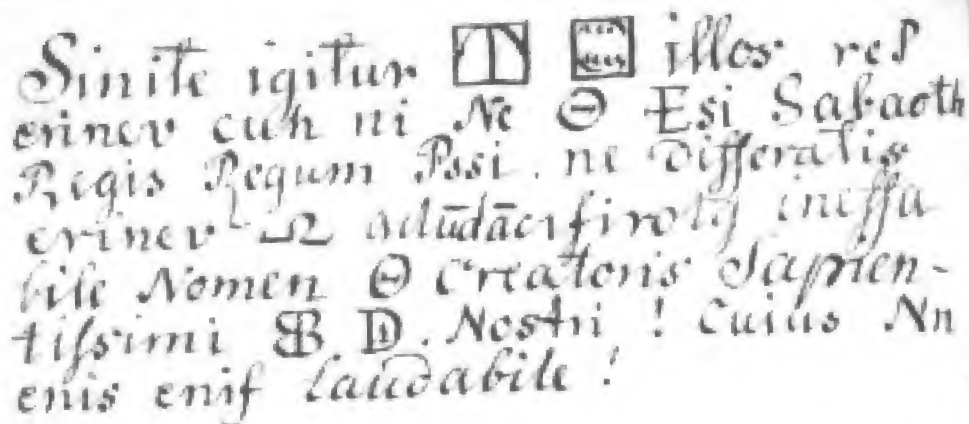 Sinite igitur illos res
erinev cuh ni Ne Θ Esi Sabaoth
Regis Regum Pssi. ne differatis
erinev ineffa
bile Nomen Θ Creatoris Sapien-
tissimi D. Nostri ! Cuius Nn
enis enif laudabile !